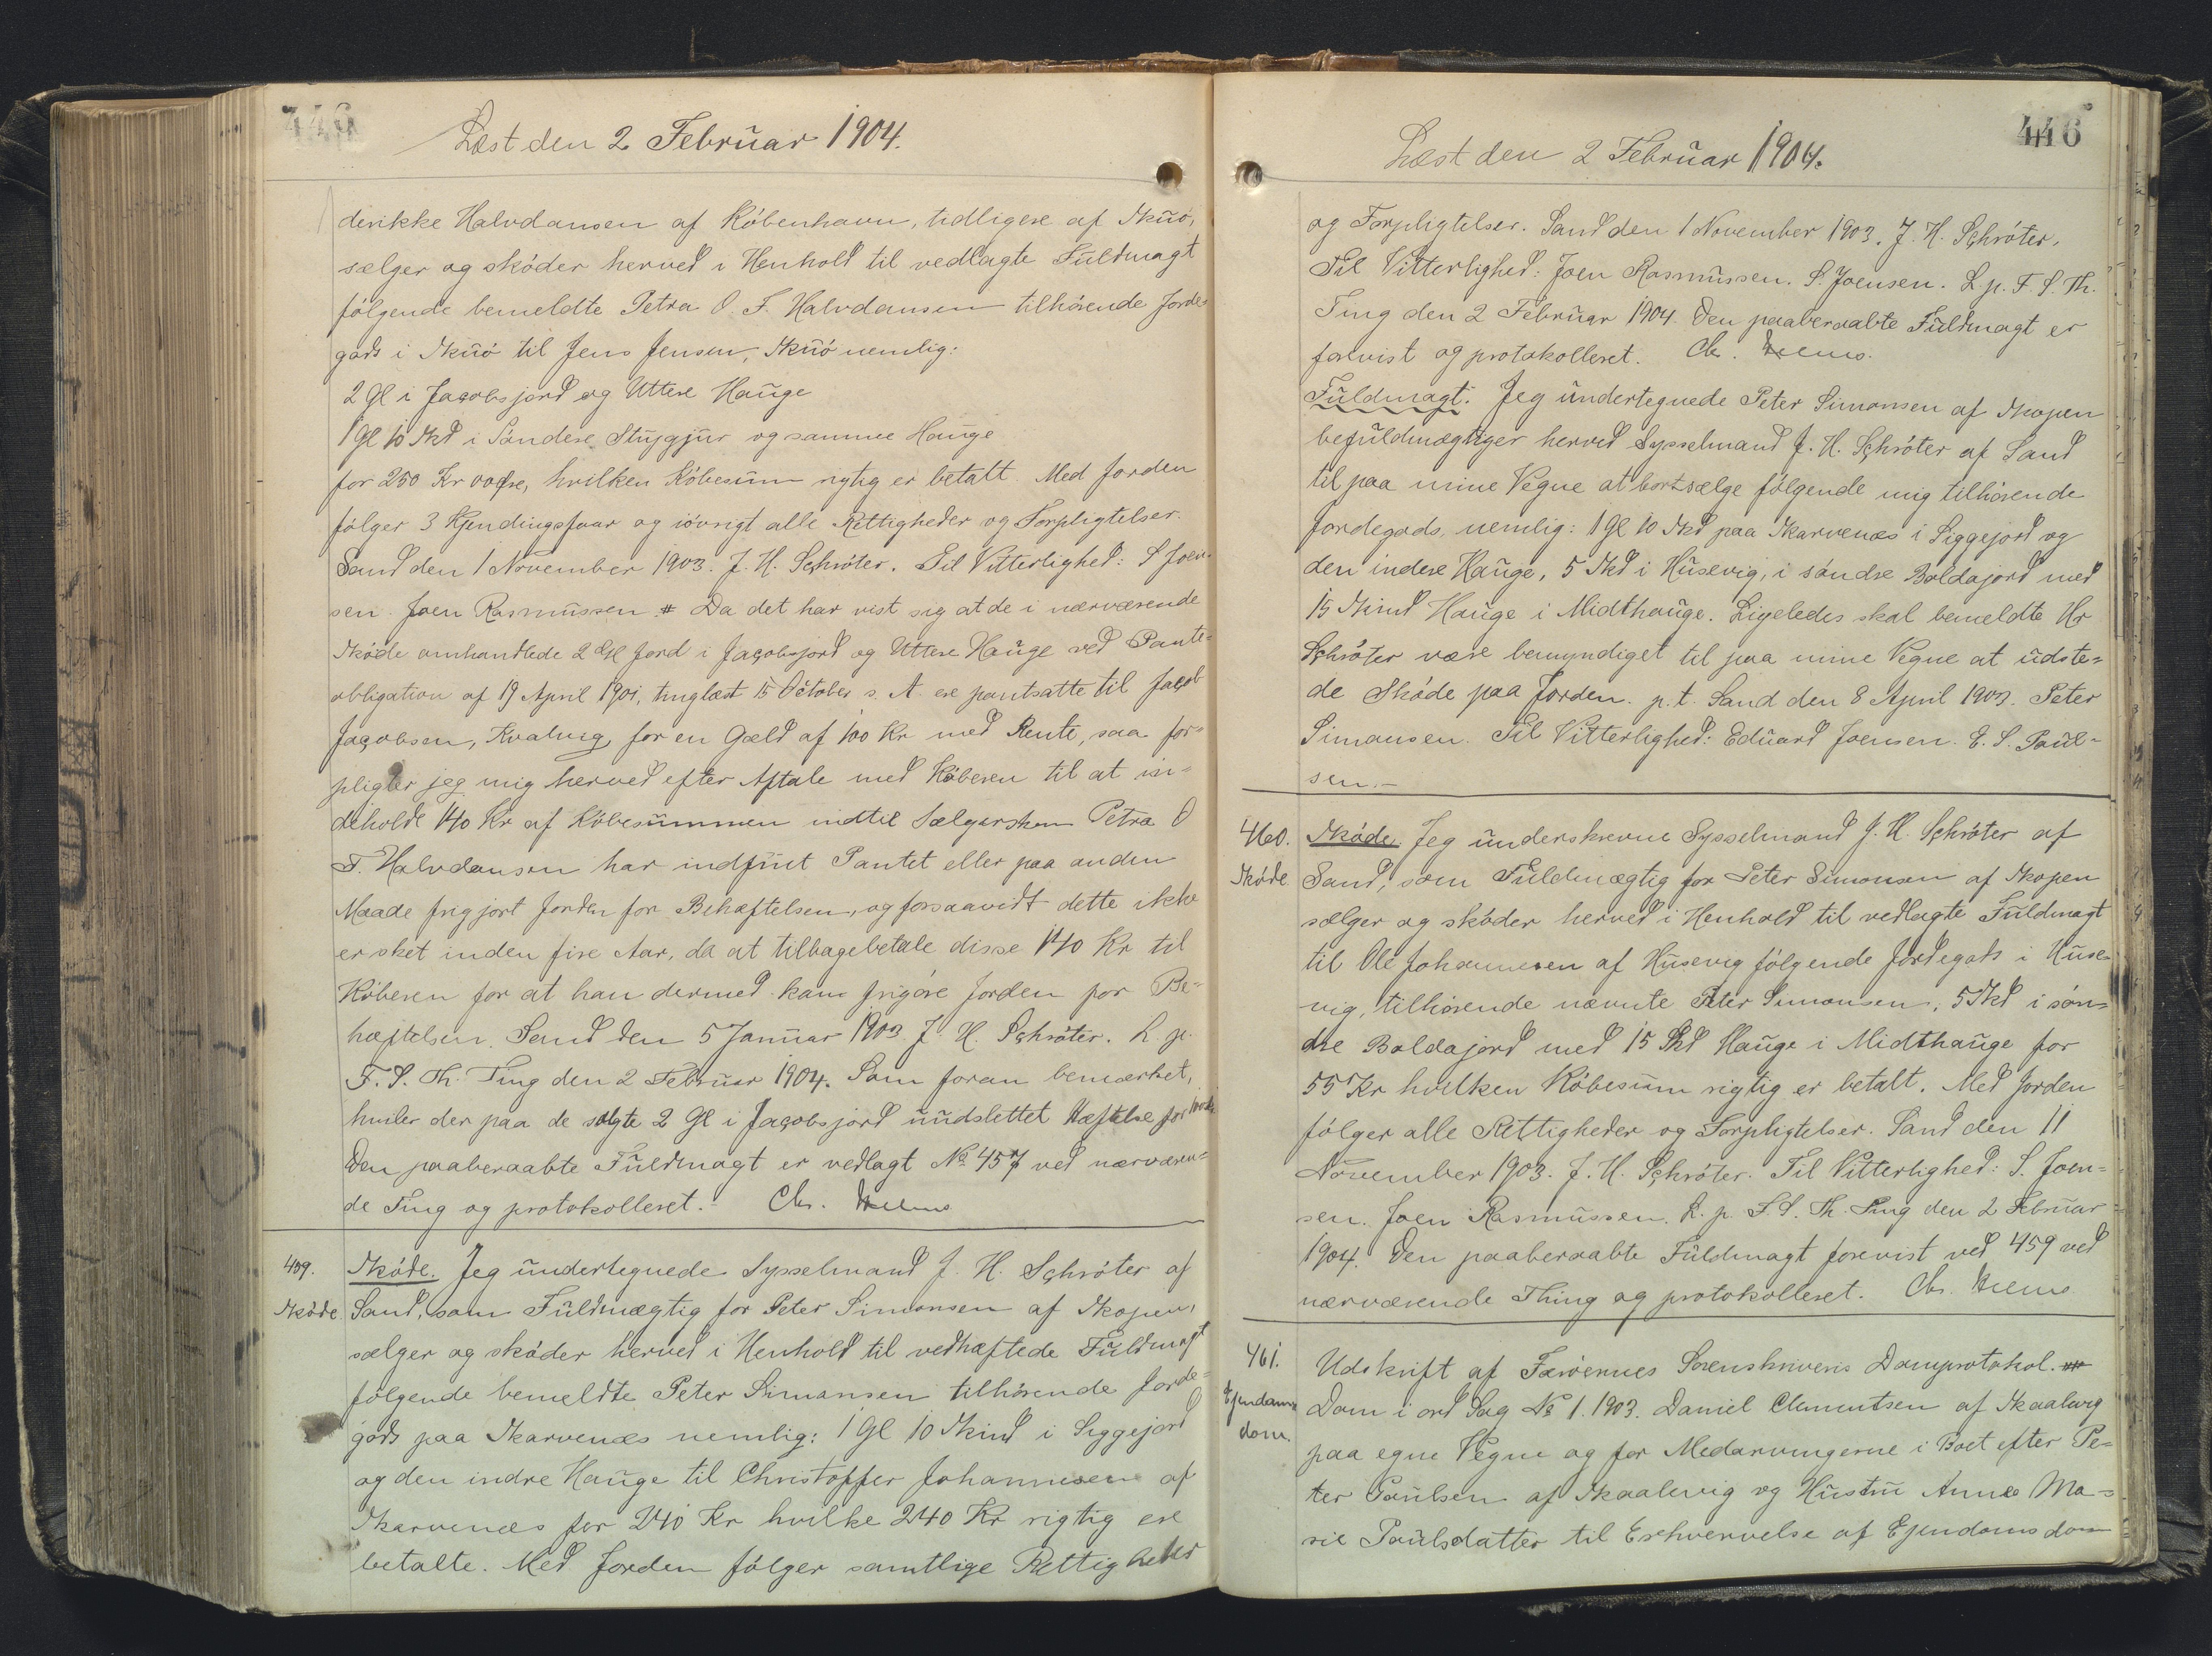 Læst den 2 Februar 1904.
derikke Halvdansen af København, tidligere af Skuø,
sælger og skøder herved i Henhold til vedlagte Fuldmagt
følgende bemeldte Petra O. F. Halvdansen tilhørende Jorde-
gods i Skuø til Jens Jensen, Skuø nemlig:
2 Gl i Jacobsjord og Uttere Hauge
1 Gl 10 Skd i Søndere Stuggjur og samme Hauge
for 250 Kr 00 Øre, hvilken Købesum rigtig er betalt. Med Jorden
følger 3 Kjendingsfaar og iøvrigt alle Rettigheder og Forpligtelser.
Sand den 1 November 1903. J. H. Schrøter. Til Vitterlighed: S Joen-
sen. Joen Rasmussen. # Da det har vist sig at de i nærværende
Skøde omhandlede 2 Gl Jord i Jacobsjord og Uttere Hauge ved Pante-
obligation af 19 April 1901, tinglæst 15 October s. A. ere pantsatte til Jacob
Jacobsen, Kvalvig, for en Gæld af 100 Kr med Rente, saa for-
pligter jeg mig herved efter Aftale med Køberen til at in-
deholde 140 Kr af Købesummen indtil Sælgersken Petra O
F. Halvdansen har indfriet Pantet eller paa anden
Maade frigjort Jorden for Behæftelsen, og forsaavidt dette ikke
er sket inden fire Aar, da at tilbagebetale disse 140 Kr til
Køberen for at han dermed kan frigøre Jorden for Be-
hæftelsen. Sand den 5 Januar 1903 J. H. Schrøter. L. p.
F. S. Th. Ting den 2 Februar 1904. Som foran bemærket,
hviler der paa de solgte 2 Gl i Jacobsjord uudslettet Hæftelse for 100 Kr
Den paaberaabte Fuldmagt er vedlagt No 457 ved nærværen-
de Ting og protokolleret. Chr.
459. Skøde. Jeg undertegnede Sysselmand J. H. Schrøter af
Skøde Sand, som Fuldmægtig for Peter Simonsen af Skopen,
sælger og skøder herved i Henhold til vedhæftede Fuldmagt
følgende bemeldte Peter Simonsen tilhørende Jorde-
gods paa Skarvenæs nemlig: 1 Gl 10 Skind i Siggejord
og den indre Hauge til Christoffer Johannesen af
Skarvenæs for 240 Kr hvilke 240 Kr rigtig ere
betalte. Med Jorden følger samtlige Rettigheder
446
Læst den 2 Februar 1904.
og Forpligtelser. Sand den 1 November 1903. J. H. Schrøter.
Til Vitterlighed: Joen Rasmussen. S. Joensen. L. p. F. S. Th.
Ting den 2 Februar 1904. Den paaberaabte Fuldmagt er
forevist og protokolleret. Chr.
Fuldmagt. Jeg undertegnede Peter Simonsen af Skopen
befuldmægtiger herved Sysselmand J. H. Schrøter af Sand
til paa mine Vegne at bortsælge følgende mig tilhørende
Jordegods, nemlig: 1 Gl 10 Skd paa Skarvenæs i Siggejord og
den indere Hauge, 5 Skd i Husevig, i søndre Boldajord med
15 Skind Hauge i Midthauge. Ligeledes skal bemeldte Hr
Schrøter være bemyndiget til paa mine Vegne at udste-
de Skøde paa Jorden. p. t. Sand den 8 April 1903. Peter
Simonsen. Til Vitterlighed: Eduard Joensen. E. S. Poul-
sen.-
460. Skøde. Jeg underskrevne Sysselmand J. H. Schrøter af
Skøde Sand, som Fuldmægtig for Peter Simonsen af Skopen
sælger og skøder herved i Henhold til vedlagte Fuldmagt
til Ole Johannesen af Husevig følgende Jordegods i Huse-
vig, tilhørende nævnte Peter Simonsen, 5 Skd i søn-
dre Boldajord med 15 Skd Hauge i Midthauge for
55 Kr hvilken Købesum rigtig er betalt. Med Jorden
følger alle Rettigheder og Forpligtelser. Sand den 11
November 1903. J. H. Schrøter. Til Vitterlighed: S. Joen-
sen. Joen Rasmussen. L. p. F. S. Th. Ting den 2 Februar
1904. Den paaberaabte Fuldmagt forevist ved 459 ved
nærværende Thing og protokolleret. Chr.
461. Udskrift af Færøernes Sorenskriveris Domprotokol.
Ejendoms Dom i ord Sag No 1. 1903. Daniel Clementsen af Skaalevig
dom. paa egne Vegne og for Medarvingerne i Boet efter Pe-
ter Poulsen af Skaalevig og Hustru Anna Ma-
rie Poulsdatter til Erhvervelse af Ejendomsdom